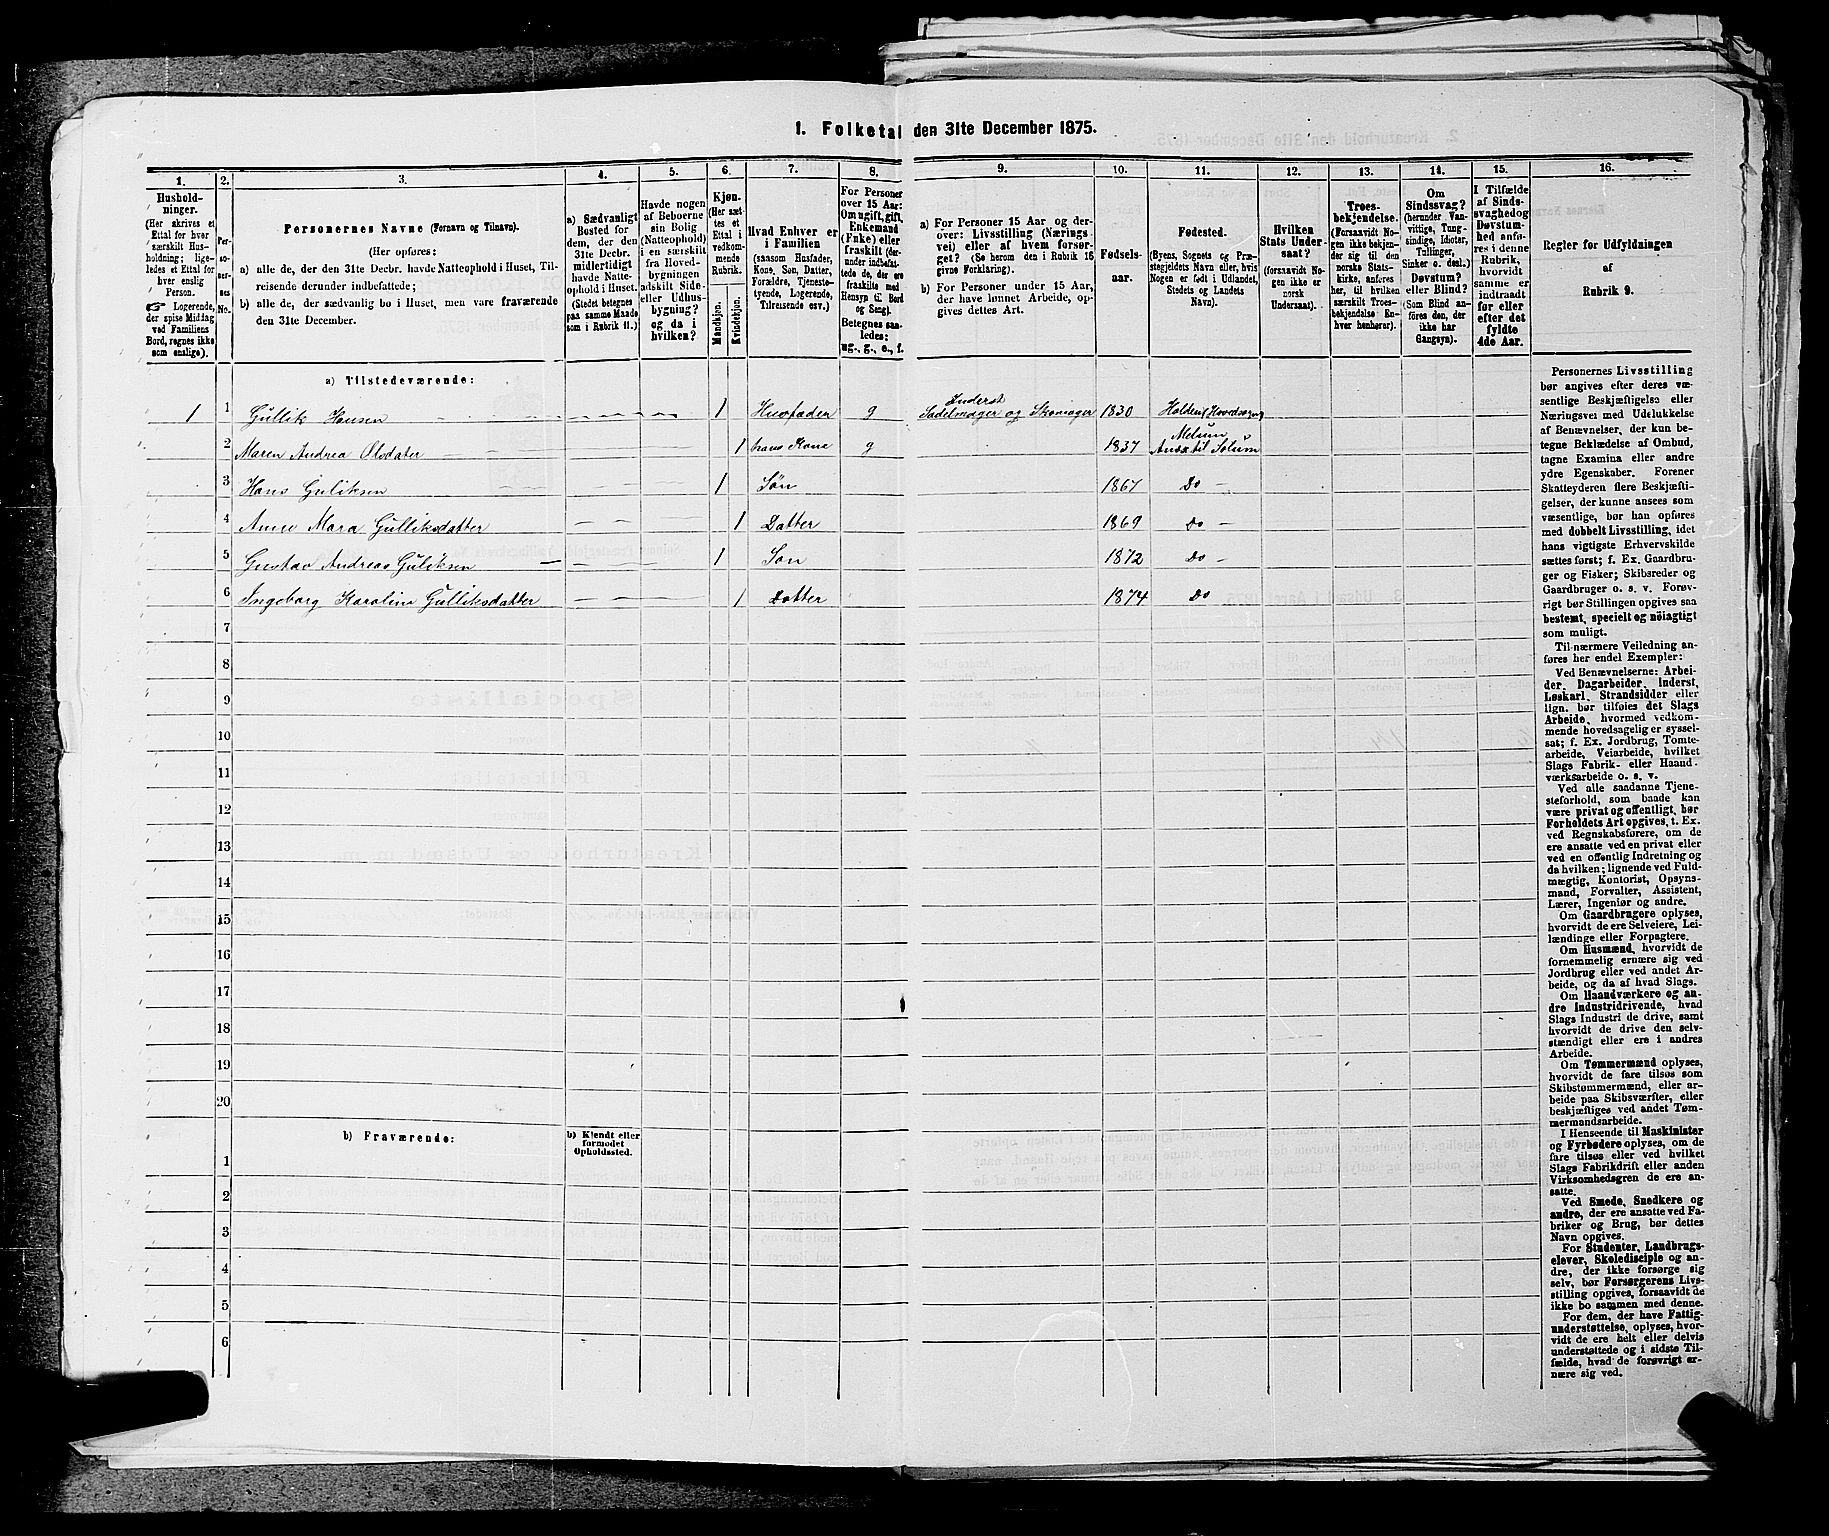 1. Folketal den 31te December 1875.
1.
2.
3.
4.
5.
6.
7.
8.
9.
10.
11.
12.
13.
14.
15.
16.
Hushold-
ninger.
(Her skrives et
Ettal for hver
særskilt Hus-
holdning; lige-
ledes et Ettal for
hver enslig
Person.
☞ Logerende,
der spise Middag
ved Familiens
Bord, regnes ikke
som enslige).
Per-
so-
ner-
nes
No.
Personernes Navne (Fornavn og Tilnavn).
(Her opføres:
a) alle de, der den 31te Decbr. havde Natteophold i Huset, Til-
reisende derunder indbefattede;
b) alle de, der sædvanlig bo i Huset, men vare fraværende
den 31te December.
a) Sædvanligt
Bosted for
dem, der den
31te Decbr.
midlertidigt
havde Natte-
ophold i Huset.
(Stedet betegnes
paa samme Maade
som i Rubrik 11.)
Havde nogen
af Beboerne
sin Bolig
(Natteophold)
i en særskilt
fra Hoved-
bygningen
adskilt Side-
eller Udhus-
bygning?
og da i
hvilken?
Kjøn.
(Her sæt-
tes et
Ettal i
vedkom-
mende
Rubrik.
Mandkjøn.
Kvindekjøn.
Hvad Enhver er
i Familien
(saasom Husfader,
Kone, Søn, Datter,
Forældre, Tjeneste-
tyende, Logerende,
Tilreisende osv.)
For Personer
over 15 Aar:
Om ugift, gift,
Enkemand
(Enke) eller
fraskilt (der-
under indbefat-
tede de, der ere
fraskilte med
Hensyn til Bord
og Seng).
Betegnes saa-
ledes:
ug., g., e., f.
a) For Personer 15 Aar og der-
over: Livsstilling (Nærings-
vei) eller af hvem forsør-
get? (Se herom den i Rubrik 16
givne Forklaring).
b) For Personer under 15 Aar,
der have lønnet Arbeide, op-
gives dettes Art.
Fødsels-
aar.
Fødested.
(Byens, Sognets og Præ-
stegjeldets Navn eller, hvis
Nogen er født i Udlandet,
Stedets og Landets
Navn).
Hvilken
Stats Under-
saat?
(forsaavidt No-
gen ikke er
norsk
Undersaat).
Troes-
bekjendelse.
(Forsaavidt No-
gen ikke bekjen-
der sig til den
norske Stats-
kirke, anføres
her, til hvilken
særskilt Troes-
bekjendelse En-
hver henhører).
Om
Sindssvag?
(herunder Van-
vittige, Tung-
sindige, Idioter,
Tullinger,
Sinker o. desl.)
Døvstum?
eller Blind?
(Som Blind an-
føres den, der
ikke har
Gangsyn).
I Tilfælde
af Sinds-
svaghed og
Døvstum-
hed anfø-
res i denne
Rubrik,
hvorvidt
samme er
indtraadt
før eller
efter det
fyldte
4de Aar.
Regler for Udfyldningen
af
Rubrik 9.
a) Tilstedeværende:
1 1 Gullik Hansen 1 Husfader g Inderst Sadelmager og Skomager 1830 Holden (Hovedsogn
2 Maren Andrea Olsdater 1 hans Kone g 1837 Melum Anex til Solum
3 Hans Guliksen 1 Søn 1867 Do -
4 Anne Mara Gulliksdatter 1 Datter 1869 Do -
5 Gustav Andreas Guliksen 1 Søn 1872 Do -
6 Ingeborg Karoline Gulliksdatter 1 Datter 1874 Do
7
8
9
10
11
12
13
14
15
16
17
18
19
20
b) Fraværende:
b) Kjendt eller
formodet
Opholdssted.
1
2
3
4
5
6
Personernes Livsstilling
bør angives efter deres væ-
sentlige Beskjæftigelse eller
Næringsvei med Udelukkelse
af Benævnelser, der kun be-
tegne Beklædelse af Ombud,
tagne Examina eller andre
ydre Egenskaber. Forener
Skatteyderen flere Beskjæfti-
gelser, der kunne ansees som
væsentlige, bør han opføres
med dobbelt Livsstilling, idet
hans vigtigste Erhvervskilde
sættes først; f. Ex. Gaardbru-
ger og Fisker; Skibsreder og
Gaardbruger o. s. v. Forøv-
rigt bør Stillingen opgives saa
bestemt, specielt og nöiagtigt
som muligt.
Til nærmere Veiledning an-
føres her endel Exempler:
Ved Benævnelserne: Arbei-
der, Dagarbeider, Inderst,
Løskarl, Strandsidder eller
lign. bør tilføies det Slags
Arbeide, hvormed vedkom-
mende hovedsagelig er syssel-
sat; f. Ex. Jordbrug, Tomte-
arbeide, Veiarbeide, hvilket
Slags Fabrik- eller Haand-
værksarbeide o. s. v.
Ved alle saadanne Tjene-
steforhold, som baade kan
være privat og offentligt, bør
Forholdets Art opgives, t. Ex.
ved Regnskabsførere, om de
ere ansatte ved en privat eller
ved en offentlig Indretning og
da hvilken; lignende ved Fuld-
mægtig, Kontorist, Opsyns-
mand, Forvalter, Assistent,
Lærer, Ingeniør og andre.
Om Gaardbrugere oplyses,
hvorvidt de ere Selveiere, Lei-
lændinge eller Forpagtere.
Om Husmænd, hvorvidt de
fornemmelig ernære sig ved
Jordbrug eller ved andet Ar-
beide, og da af hvad Slags.
Om Haandværkere og an-
dre Industridrivende, hvad
Slags Industri de drive, samt
hvorvidt de drive den selv-
stændigt eller ere i andres
Arbeide.
Om Tømmermænd oplyses,
hvorvidt de fare tilsøs som
Skibstømmermænd, eller ar-
beide paa Skibsværfter, eller
beskjæftiges ved andet Tøm-
mermandsarbeide.
I Henseende til Maskinister
og Fyrbødere oplyses, om de
fare tilsøs eller ved hvilket
Slags Fabrikdrift eller anden
Virksomhedsgren de ere an-
satte.
Ved Smede, Snedkere og
andre, der ere ansatte ved Fa-
briker og Brug, bør dettes
Navn opgives.
For Studenter, Landbrugs-
elever, Skoledisciple og an-
dre, der ikke forsørge sig
selv, bør Forsørgerens Livs-
stilling opgives, forsaavidt de
ikke bo sammen med denne.
For dem, der have Fattig-
understøttelse, oplyses, hvor-
vidt de ere helt eller delvis
understøttede og i sidste Til-
fælde, hvad de forøvrigt er-
nære sig ved.